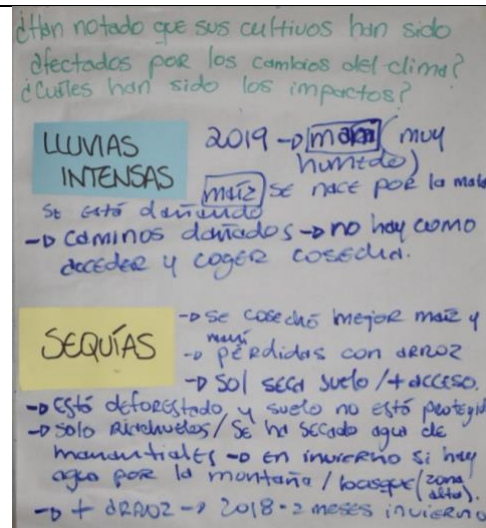 ¿Han notado que sus cultivos han sido
afectados por los cambios del clima?
¿Cuáles han sido los impactos?
LLUVIAS
INTENSAS
2019 -> maní (muy
humedo)
maíz se nace por la mata
se está dañando
-> caminos dañados -> no hay como
acceder y coger cosecha.
SEQUÍAS
-> se cosechó mejor maíz y
maní
-> pérdidas con arroz
-> sol seca suelo / + acceso.
-> está deforestado y suelo no está protegid
-> solo riachuelos / se ha secado agua de
manantiales -> en invierno si hay
agua por la montaña / bosque (zona
alta).
-> + arroz -> 2018 - 2 meses invierno